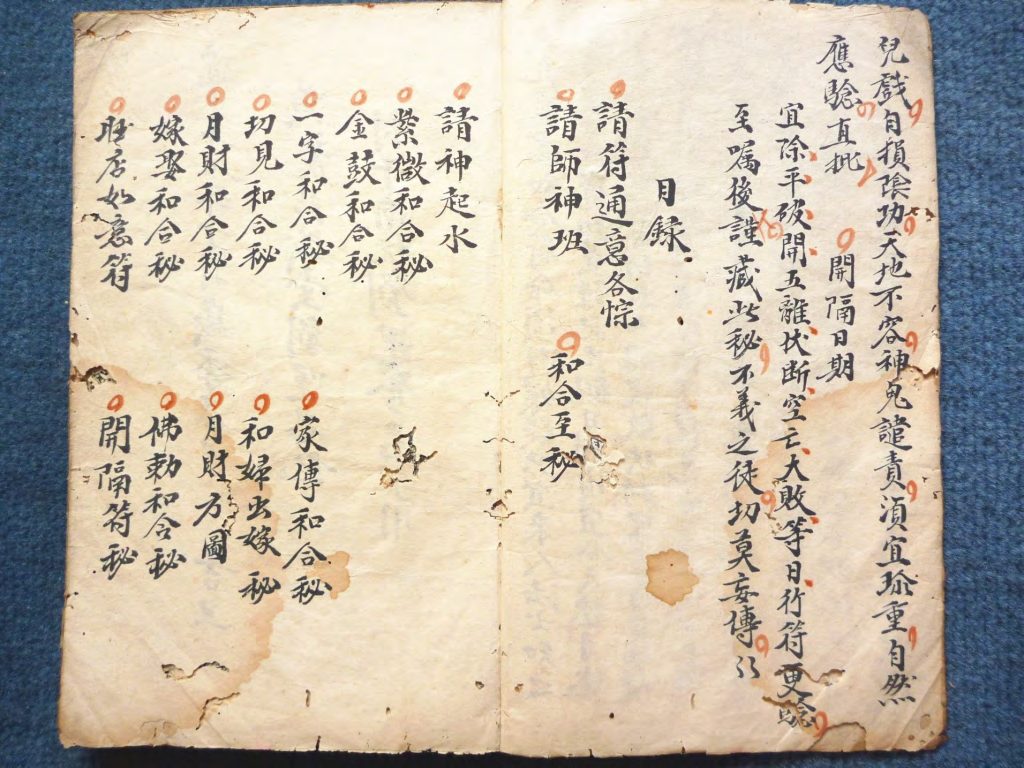 兒戲自損陰功天地不容神鬼譴責須宜珍重自然
應驗直批
開隔日期
宜除平破開五離伏断空亡大敗等日行符更驗
至嘱後謹藏此秘不義之徒切莫妄傳
目録
請符通意各悰
請師神班 和合至秘
請神起水
紫微和合秘
金鼓和合秘
一字和合秘 家傳和合秘
切見和合秘 和婦出嫁秘
月財和合秘 月財方圖
嫁娶和合秘 佛勅和合秘
店如意符 開隔符秘